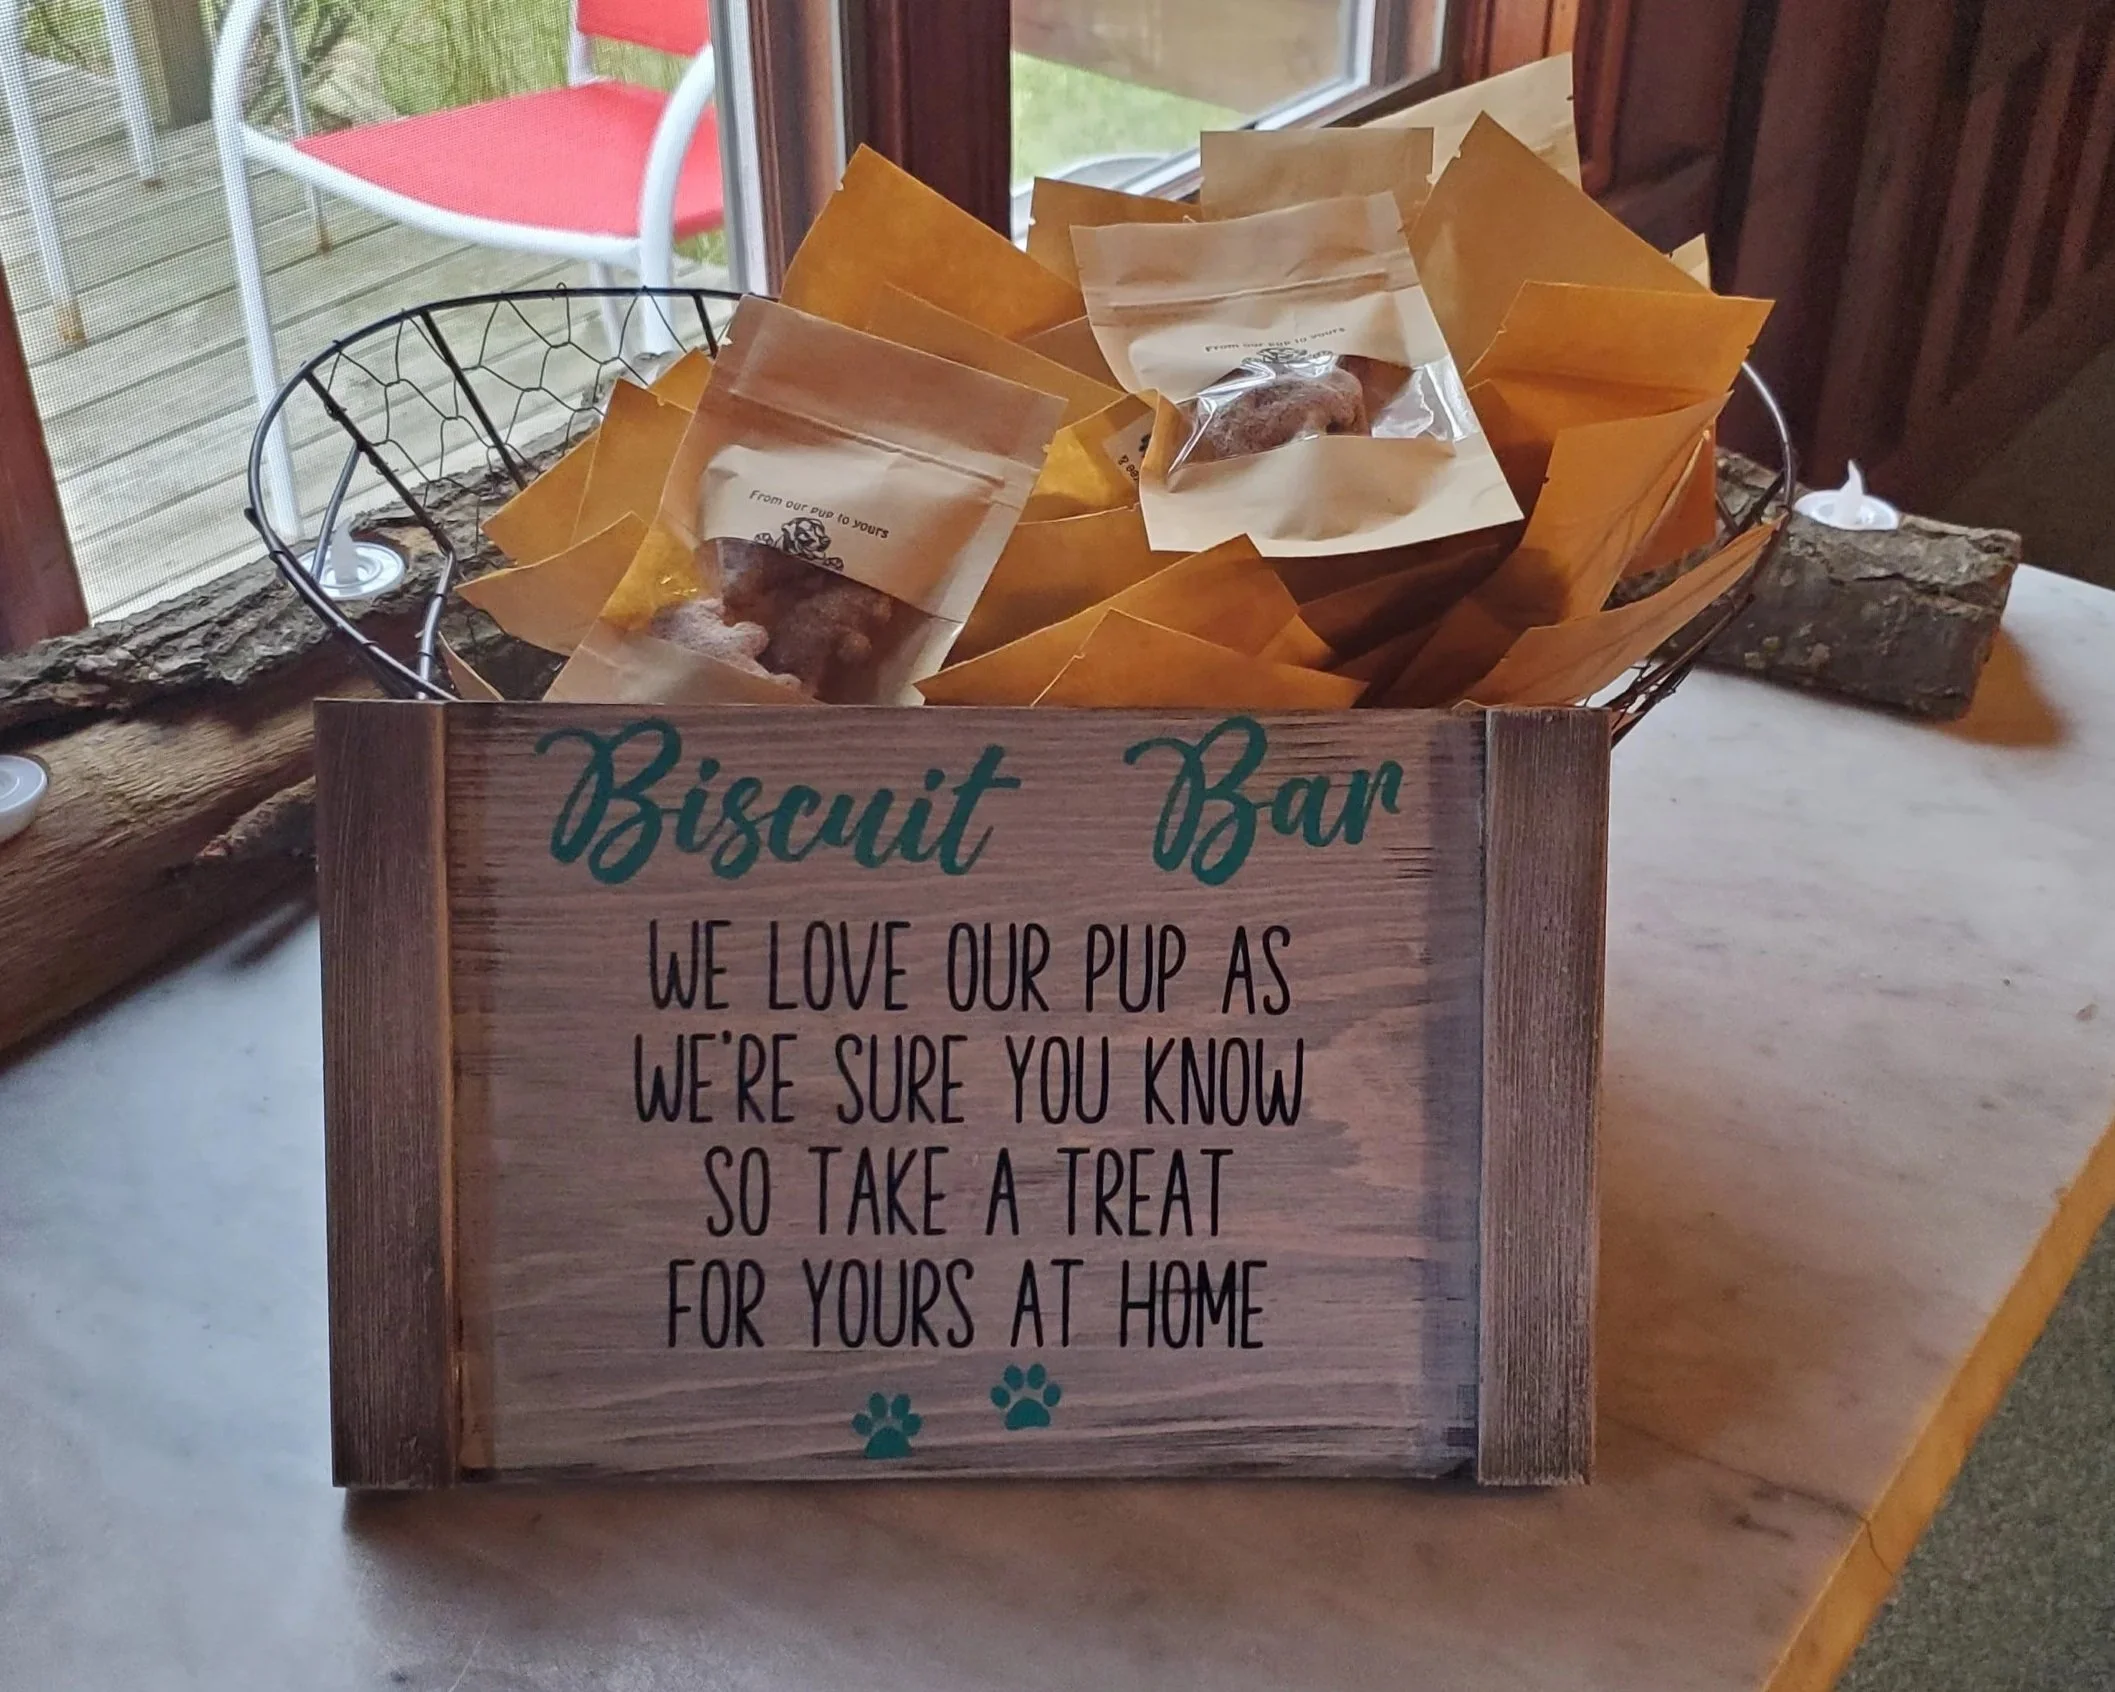 From our pup to yours
From our pup to yours
Biscuit Bar
WE LOVE OUR PUP AS
WE'RE SURE YOU KNOW
SO TAKE A TREAT
FOR YOURS AT HOME